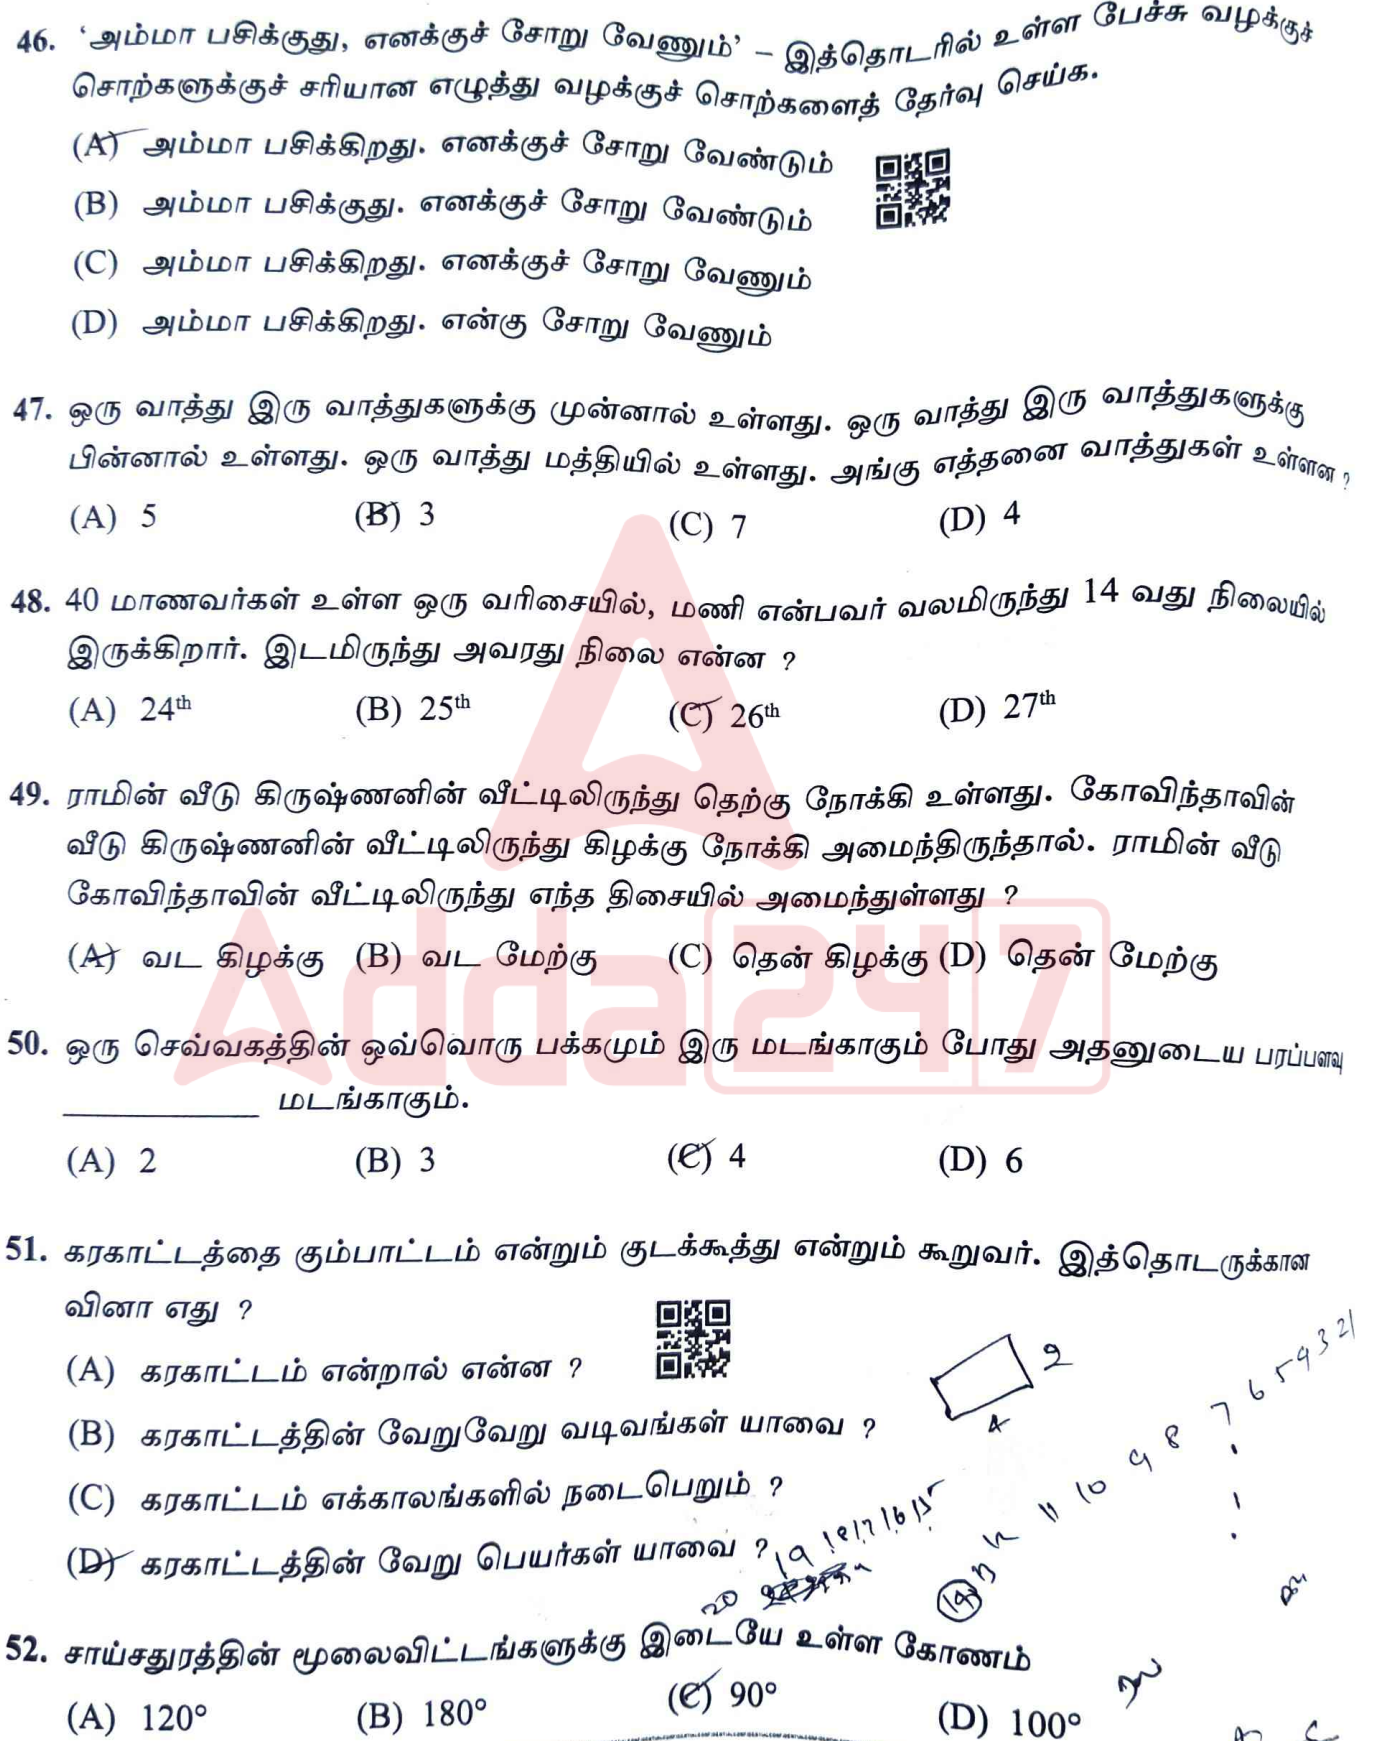 46. ‘அம்மா பசிக்குது, எனக்குச் சோறு வேணும்’ – இத்தொடரில் உள்ள பேச்சு வழக்குச்
சொற்களுக்குச் சரியான எழுத்து வழக்குச் சொற்களைத் தேர்வு செய்க.
(A) அம்மா பசிக்கிறது. எனக்குச் சோறு வேண்டும்
(B) அம்மா பசிக்குது. எனக்குச் சோறு வேண்டும்
(C) அம்மா பசிக்கிறது. எனக்குச் சோறு வேணும்
(D) அம்மா பசிக்கிறது. என்கு சோறு வேணும்
47. ஒரு வாத்து இரு வாத்துகளுக்கு முன்னால் உள்ளது. ஒரு வாத்து இரு வாத்துகளுக்கு
பின்னால் உள்ளது. ஒரு வாத்து மத்தியில் உள்ளது. அங்கு எத்தனை வாத்துகள் உள்ளன ?
(A) 5 (B) 3 (C) 7 (D) 4
48. 40 மாணவர்கள் உள்ள ஒரு வரிசையில், மணி என்பவர் வலமிருந்து 14 வது நிலையில்
இருக்கிறார். இடமிருந்து அவரது நிலை என்ன ?
(A) 24th (B) 25th (C) 26th (D) 27th
49. ராமின் வீடு கிருஷ்ணனின் வீட்டிலிருந்து தெற்கு நோக்கி உள்ளது. கோவிந்தாவின்
வீடு கிருஷ்ணனின் வீட்டிலிருந்து கிழக்கு நோக்கி அமைந்திருந்தால். ராமின் வீடு
கோவிந்தாவின் வீட்டிலிருந்து எந்த திசையில் அமைந்துள்ளது ?
(A) வட கிழக்கு (B) வட மேற்கு (C) தென் கிழக்கு (D) தென் மேற்கு
Adda247
50. ஒரு செவ்வகத்தின் ஒவ்வொரு பக்கமும் இரு மடங்காகும் போது அதனுடைய பரப்பளவு
____________ மடங்காகும்.
(A) 2 (B) 3 (C) 4 (D) 6
51. கரகாட்டத்தை கும்பாட்டம் என்றும் குடக்கூத்து என்றும் கூறுவர். இத்தொடருக்கான
வினா எது ?
(A) கரகாட்டம் என்றால் என்ன ?
(B) கரகாட்டத்தின் வேறுவேறு வடிவங்கள் யாவை ?
(C) கரகாட்டம் எக்காலங்களில் நடைபெறும் ?
(D) கரகாட்டத்தின் வேறு பெயர்கள் யாவை ?
2
52. சாய்சதுரத்தின் மூலைவிட்டங்களுக்கு இடையே உள்ள கோணம்
(A) 120° (B) 180° (C) 90° (D) 100°